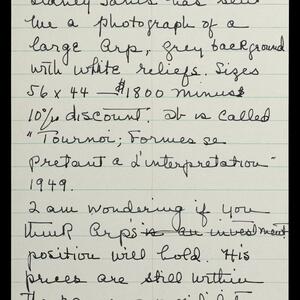 Sidney Janis has sent
me a photograph of a
large Arp, grey background
with white reliefs. Sizes
56 x 44 — $1800 minus
10% discount. It is called
"Tournoi; Formes se
pretant a L'interpretation"
1949.
I am wondering if you
think Arp's is an investment
position will hold. His
prices are still within